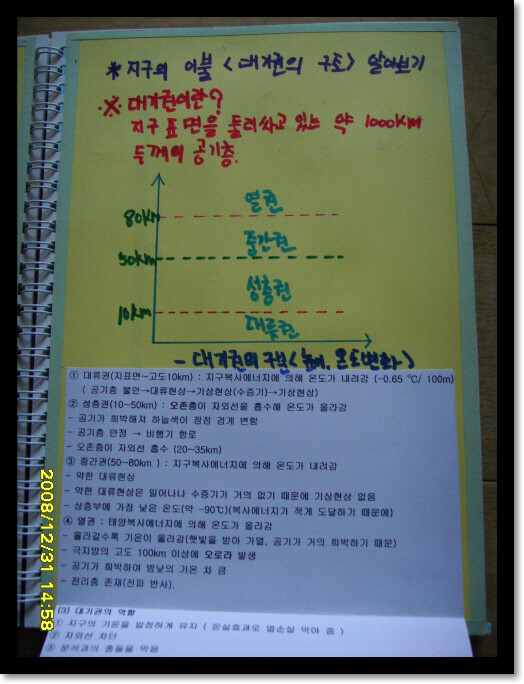 ※ 지구의 이불 <대기권의 구조> 알아보기
※ 대기권이란?
지구 표면을 둘러싸고 있는 약 1000km
두께의 공기층.
열권
80km
중간권
50km
성층권
10km
대류권
- 대기권의 구분 (높이, 온도변화)
① 대류권(지표면~고도10km) : 지구복사에너지에 의해 온도가 내려감 (-0.65 ℃/ 100m)
( 공기층 불안→대류현상→기상현상(수증기)→기상현상)
② 성층권(10~50km) : 오존층이 자외선을 흡수해 온도가 올라감
- 공기가 희박해져 하늘색이 점점 검게 변함
- 공기층 안정 → 비행기 항로
- 오존층이 자외선 흡수 (20~35km)
③ 중간권(50~80km ) : 지구복사에너지에 의해 온도가 내려감
- 약한 대류현상
- 약한 대류현상은 일어나나 수증기가 거의 없기 때문에 기상현상 없음
- 상층부에 가장 낮은 온도(약 -90℃)(복사에너지가 적게 도달하기 때문에)
④ 열권 : 태양복사에너지에 의해 온도가 올라감
- 올라갈수록 기온이 올라감(햇빛을 받아 가열, 공기가 거의 희박하기 때문)
- 극지방의 고도 100km 이상에 오로라 발생
- 공기가 희박하여 밤낮의 기온 차 큼
- 전리층 존재(전파 반사).
(3) 대기권의 역할
① 지구의 기온을 일정하게 유지 ( 온실효과로 열손실 막아 줌 )
② 자외선 차단
③ 운석과의 충돌을 막음
2008/12/31 14:58